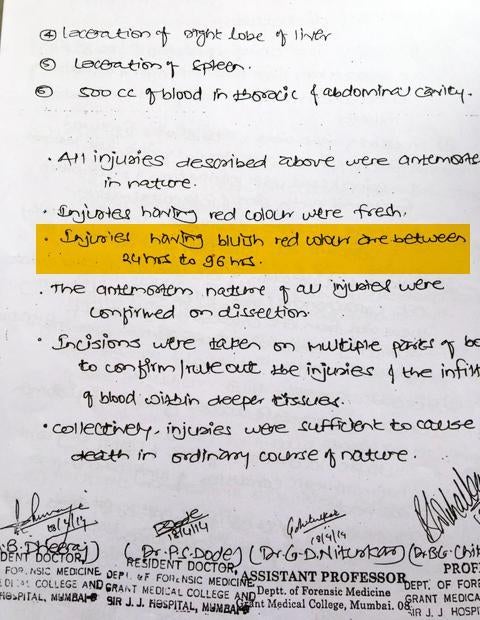 ④ laceration of right lobe of liver
⑤ Laceration of spleen.
⑥ 500 cc of blood in thoracic & abdominal cavity.
• All injuries described above were antemorte
in nature.
• Injuries having red colour were fresh.
• Injuries having bluish red colour are between
24 hrs to 96 hrs.
• The antemortem nature of all injuries were
confirmed on dissection.
• Incisions were taken on multiple parts of bo
to confirm / rule out the injuries & the infilt
of blood within deeper tissues.
• collectively, injuries were sufficient to cause
death in ordinary course of nature.
18/4/14
18/4/14
18/4/14
.B. Dheeraj) (Dr. P.S. Dode) (Dr. G.D. Niturkar) (Dr. B.G. Chik
DENT DOCTOR, RESIDENT DOCTOR, ASSISTANT PROFESSOR PROF
FORENSIC MEDICINE DEPT. OF FORENSIC MEDICINE Deptt. of Forensic Medicine DEPT. OF FORE
MEDICAL COLLEGE AND GRANT MEDICAL COLLEGE AND Grant Medical College, Mumbai. 08 GRANT MEDICA
HOSPITAL, MUMBAI-8 SIR J.J. HOSPITAL, MUMBAI-8 SIR J. J HOSPI